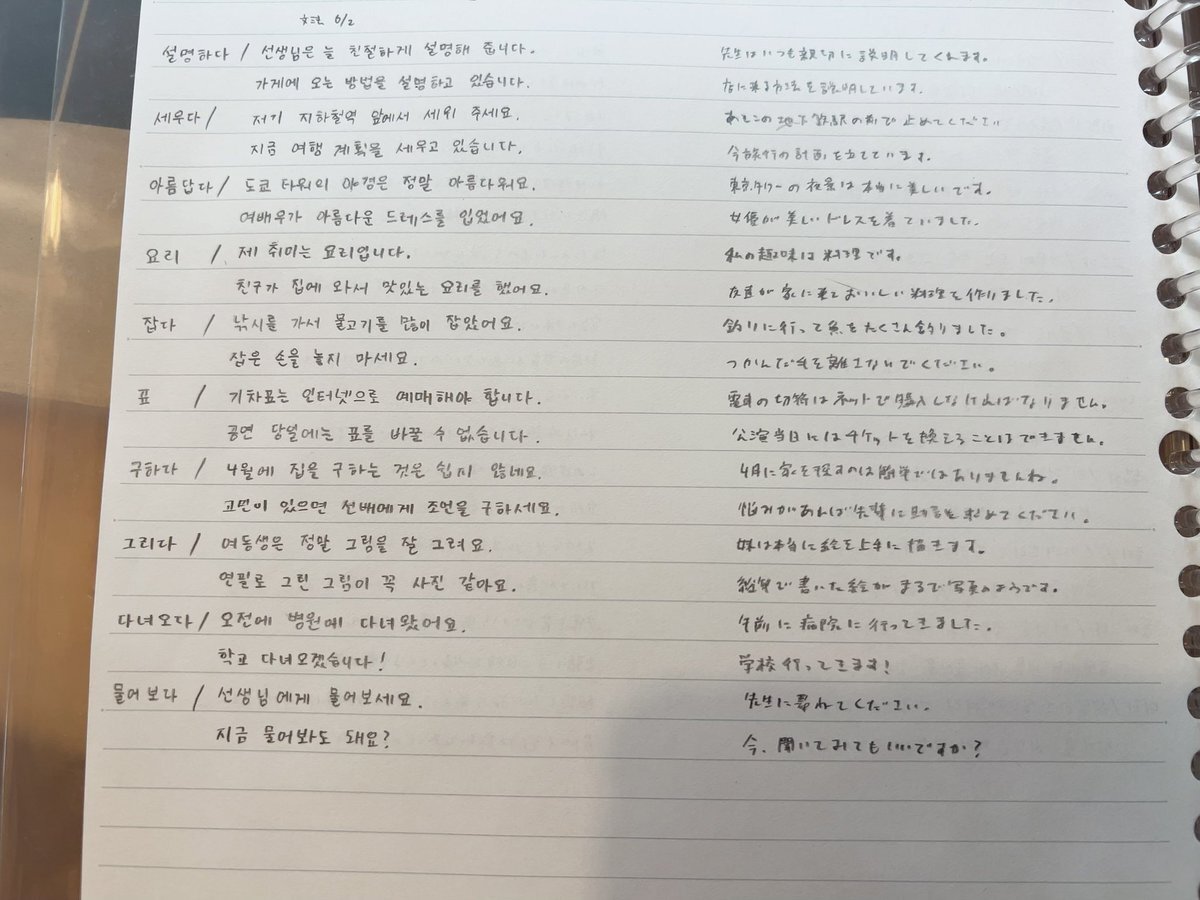 文法 6/2
설명하다 / 선생님은 늘 친절하게 설명해 줍니다. 先生はいつも親切に説明してくれます。
가게에 오는 방법을 설명하고 있습니다. 店に来る方法を説明しています。
세우다 / 저기 지하철역 앞에서 세워 주세요. あそこの地下鉄駅の前で止めてください
지금 여행 계획을 세우고 있습니다. 今旅行の計画を立てています。
아름답다 / 도쿄 타워의 야경은 정말 아름다워요. 東京タワーの夜景は本当に美しいです。
여배우가 아름다운 드레스를 입었어요. 女優が美しいドレスを着ていました。
요리 / 제 취미는 요리입니다. 私の趣味は料理です。
친구가 집에 와서 맛있는 요리를 했어요. 友達が家に来ておいしい料理を作りました。
잡다 / 낚시를 가서 물고기를 많이 잡았어요. 釣りに行って魚をたくさん釣りました。
잡은 손을 놓지 마세요. つかんだ手を離さないでください。
표 / 기차표는 인터넷으로 예매해야 합니다. 電車の切符はネットで購入しなければなりません。
공연 당일에는 표를 바꿀 수 없습니다. 公演当日にはチケットを換えることはできません。
구하다 / 4월에 집을 구하는 것은 쉽지 않네요. 4月に家を探すのは簡単ではありませんね。
고민이 있으면 선배에게 조언을 구하세요. 悩みがあれば先輩に助言を求めてください。
그리다 / 여동생은 정말 그림을 잘 그려요. 妹は本当に絵を上手に描きます。
연필로 그린 그림이 꼭 사진 같아요. 鉛筆で書いた絵がまるで写真のようです。
다녀오다 / 오전에 병원에 다녀왔어요. 午前に病院に行ってきました。
학교 다녀오겠습니다! 学校行ってきます!
물어보다 / 선생님에게 물어보세요. 先生に尋ねてください。
지금 물어봐도 돼요? 今、聞いてみてもいいですか?